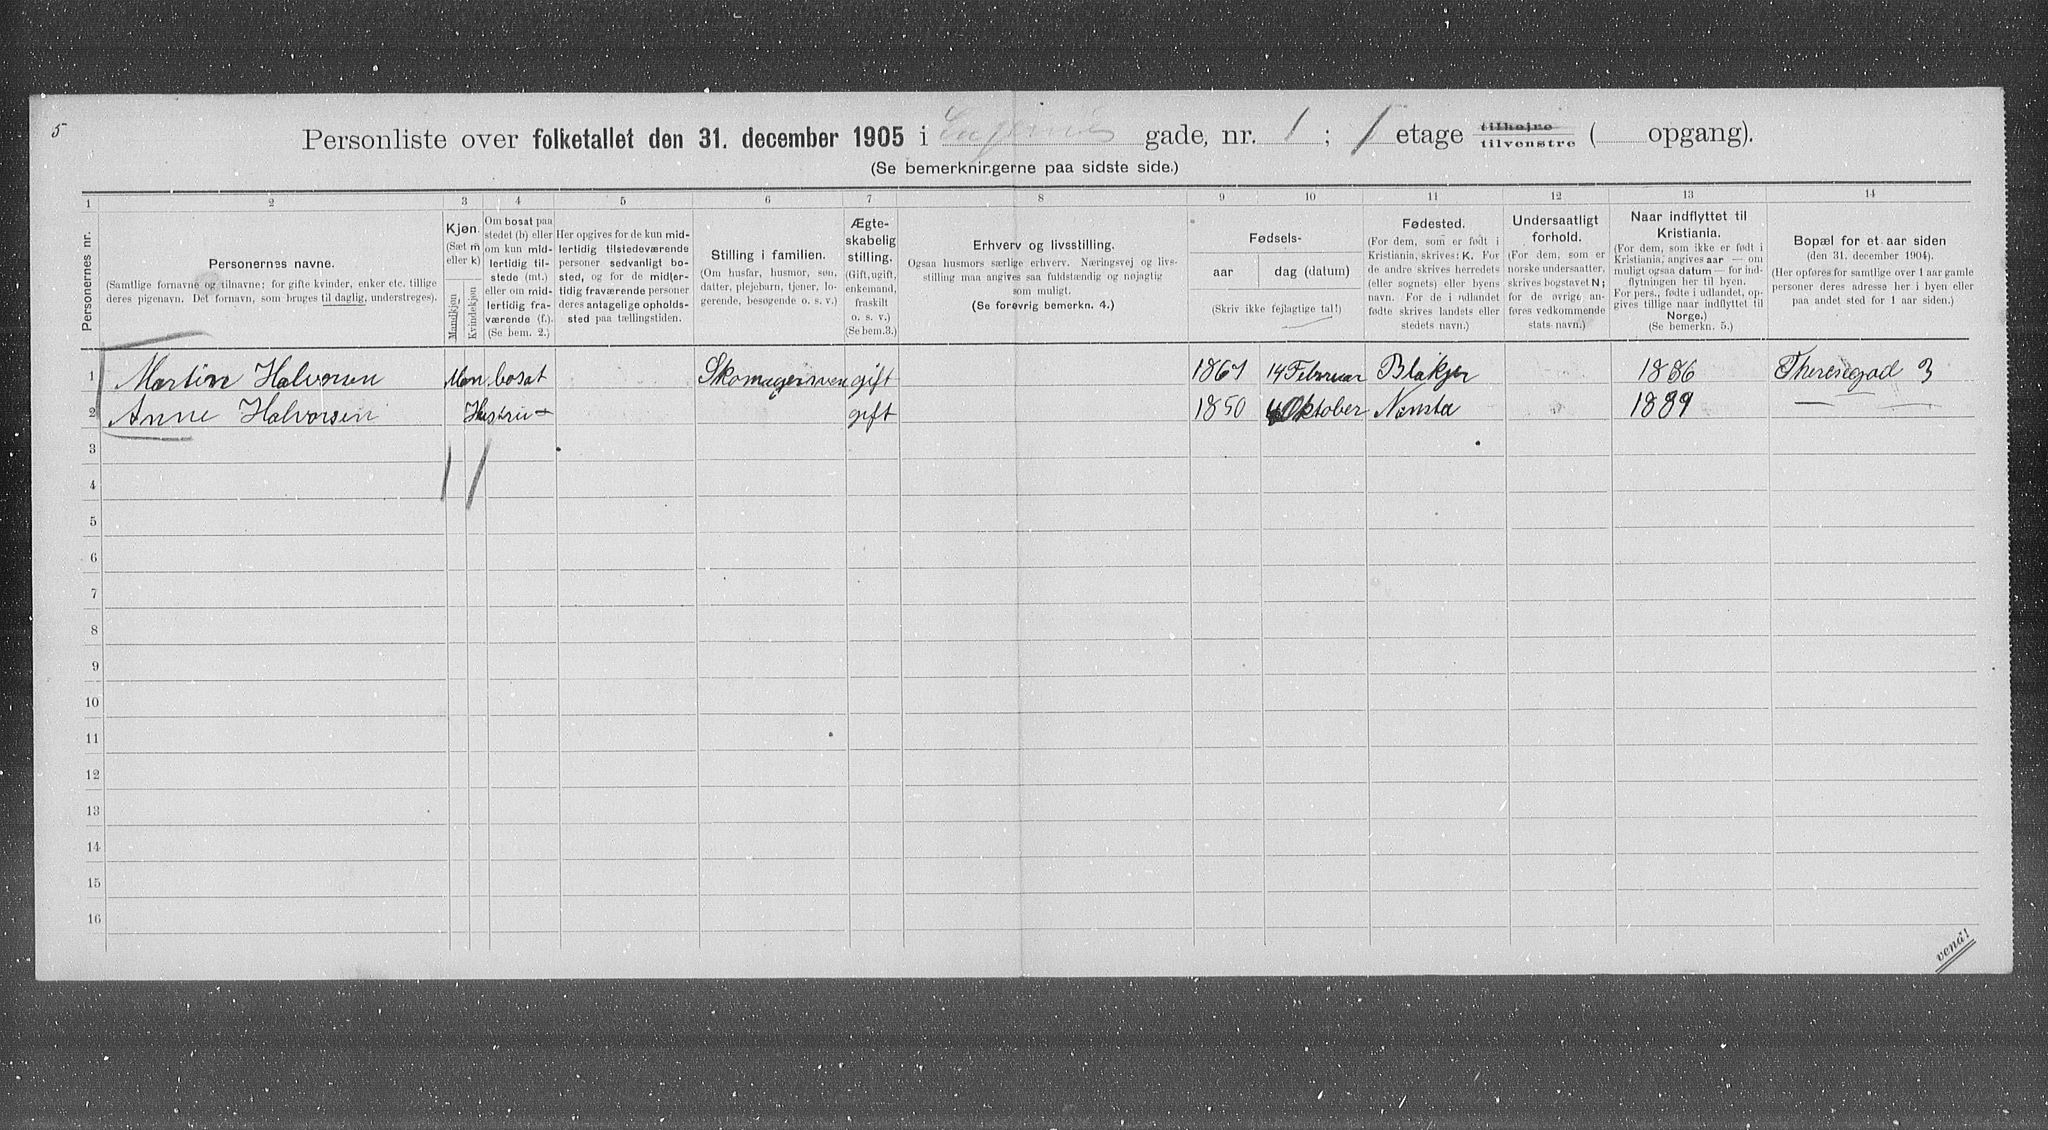 5
Personliste over folketallet den 31. december 1905 i Eugenies gade, nr. 1 ; 1 etage tilhøire tilvenstre ( opgang).
(Se bemerkningerne paa sidste side.)
1 2 3 4 5 6 7 8 9 10 11 12 13 14
Personernes nr.
Personernes navne.
(Samtlige fornavne og tilnavne; for gifte kvinder, enker etc. tillige
deres pigenavn. Det fornavn, som bruges til daglig, understreges).
Kjøn.
(Sæt m
eller k)
Mandkjøn
Kvindekjøn
Om bosat paa
stedet (b) eller
om kun mid-
lertidig til-
stede (mt.)
eller om mid-
lertidig fra-
værende (f.).
(Se bem. 2.)
Her opgives for de kun mid-
lertidig tilstedeværende
personer sedvanligt bo-
sted, og for de midler-
tidig fraværende personer
deres antagelige opholds-
sted paa tællingstiden.
Stilling i familien.
(Om husfar, husmor, søn,
datter, plejebarn, tjener, lo-
gerende, besøgende o. s. v.)
Ægte-
skabelig
stilling.
(Gift, ugift,
enkemand,
fraskilt
o. s. v.)
(Se bem. 3.)
Erhverv og livsstilling.
Ogsaa husmors særlige erhverv. Næringsvej og livs-
stilling maa angives saa fuldstændig og nøjagtig
som muligt.
(Se forøvrig bemerkn. 4.)
Fødsels-
aar dag (datum)
(Skriv ikke fejlagtige tal!)
Fødested.
(For dem, som er født i
Kristiania, skrives: K. For
de andre skrives herredets
(eller sognets) eller byens
navn. For de i udlandet
fødte skrives landets eller
stedets navn.)
Undersaatligt
forhold.
(For dem, som er
norske undersaatter,
skrives bogstavet N;
for de øvrige an-
føres vedkommende
stats navn.)
Naar indflyttet til
Kristiania.
(For dem, som ikke er født i
Kristiania, angives aar — om
muligt ogsaa datum — for ind-
flytningen her til byen.
For pers., fødte i udlandet, op-
gives tillige naar indflyttet til
Norge.)
(Se bemerkn. 5.)
Bopæl for et aar siden
(den 31. december 1904).
(Her opføres for samtlige over 1 aar gamle
personer deres adresse her i byen eller
paa andet sted for 1 aar siden.)
1 Martin Halvorsen Man bosat Skomagersven gift 1867 14 Februar Blakjer 1886 Theresegad 3
2 Anne Halvorsen Hustru gift 1850 Oktober 1889
3
4
5
6
7
8
9
10
11
12
13
14
15
16
vend!